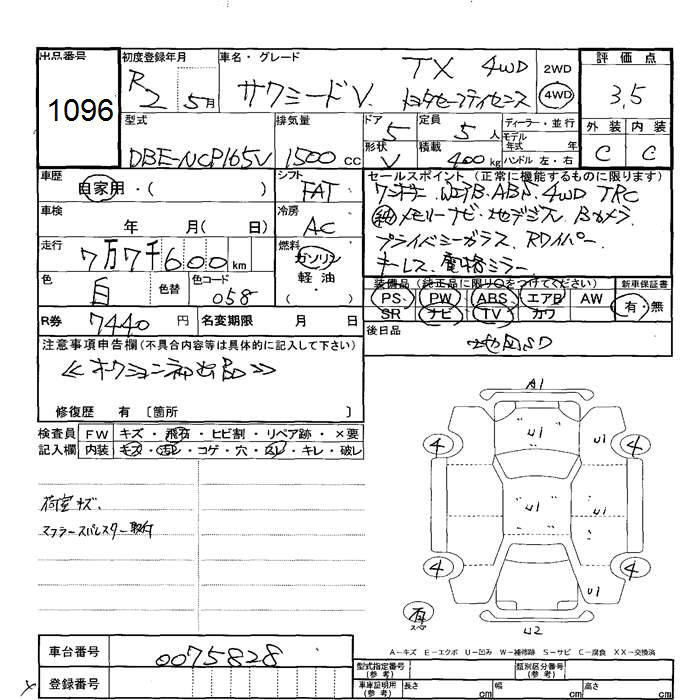 出品番号 1096
初度登録年月 R2 5月
車名・グレード サクシードV. TX 4WD トヨタセーフティセンス
2WD 4WD
評価点 3.5
外装 C 内装 C
型式 DBE-NCP165V
排気量 1500 cc
ドア 5
定員 5 人
形状 V
積載 400 kg
ディーラー・並行
モデル年式 年
ハンドル 左・右
車歴 自家用・( )
シフト FAT
車検 年 月( 日)
冷房 AC
走行 7万7千600 km
燃料 ガソリン 軽油 ・
色 白 色替 色コード 058
R券 7440 円 名変期限 月 日
セールスポイント (正常に機能するものに限ります)
ワンオーナー.WエアB.ABS.4WD TRC
純メモリーナビ・地デジTV Bカメラ
プライバシーガラス.Rワイパー.
キーレス.電格ミラー.
装備品 (純正品に限り○をつけてください)
PS PW ABS エアB AW
SR ナビ TV カワ
新車保証書 有・無
後日品 地図SD
注意事項申告欄(不具合内容等は具体的に記入して下さい)
≪オークション初出品≫
修復歴 有 〔箇所 〕
検査員 FW キズ・飛石・ヒビ割・リペア跡・×要
記入欄 内装 キズ・汚レ・コゲ・穴・スレ・キレ・破レ
荷室キズ.
マフラースパイスター取付
A1
4 U1 U1 4
U1 U1
4 4
U1
有 スペア
U2
A-キズ E-エクボ U-凹み W-補修跡 S-サビ C-腐食 XX-交換済
車台番号 0075828
登録番号
型式指定番号(参考) 類別区分番号(参考)
車庫証明用(参考) 長さ cm 幅 cm 高さ cm